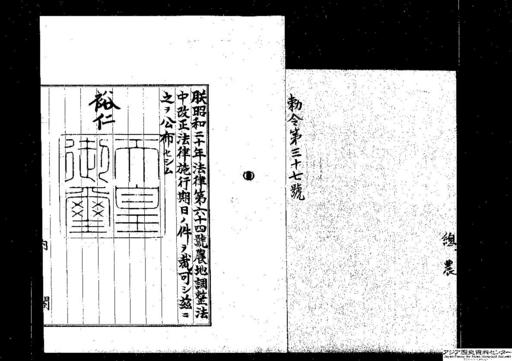 勅令第三十七號
總農
朕昭和二十年法律第六十四號農地調整法
中改正法律施行期日ノ件ヲ裁可シ茲ニ
之ヲ公布セシム
裕仁
天皇
御璽
内閣
アジア歴史資料センター